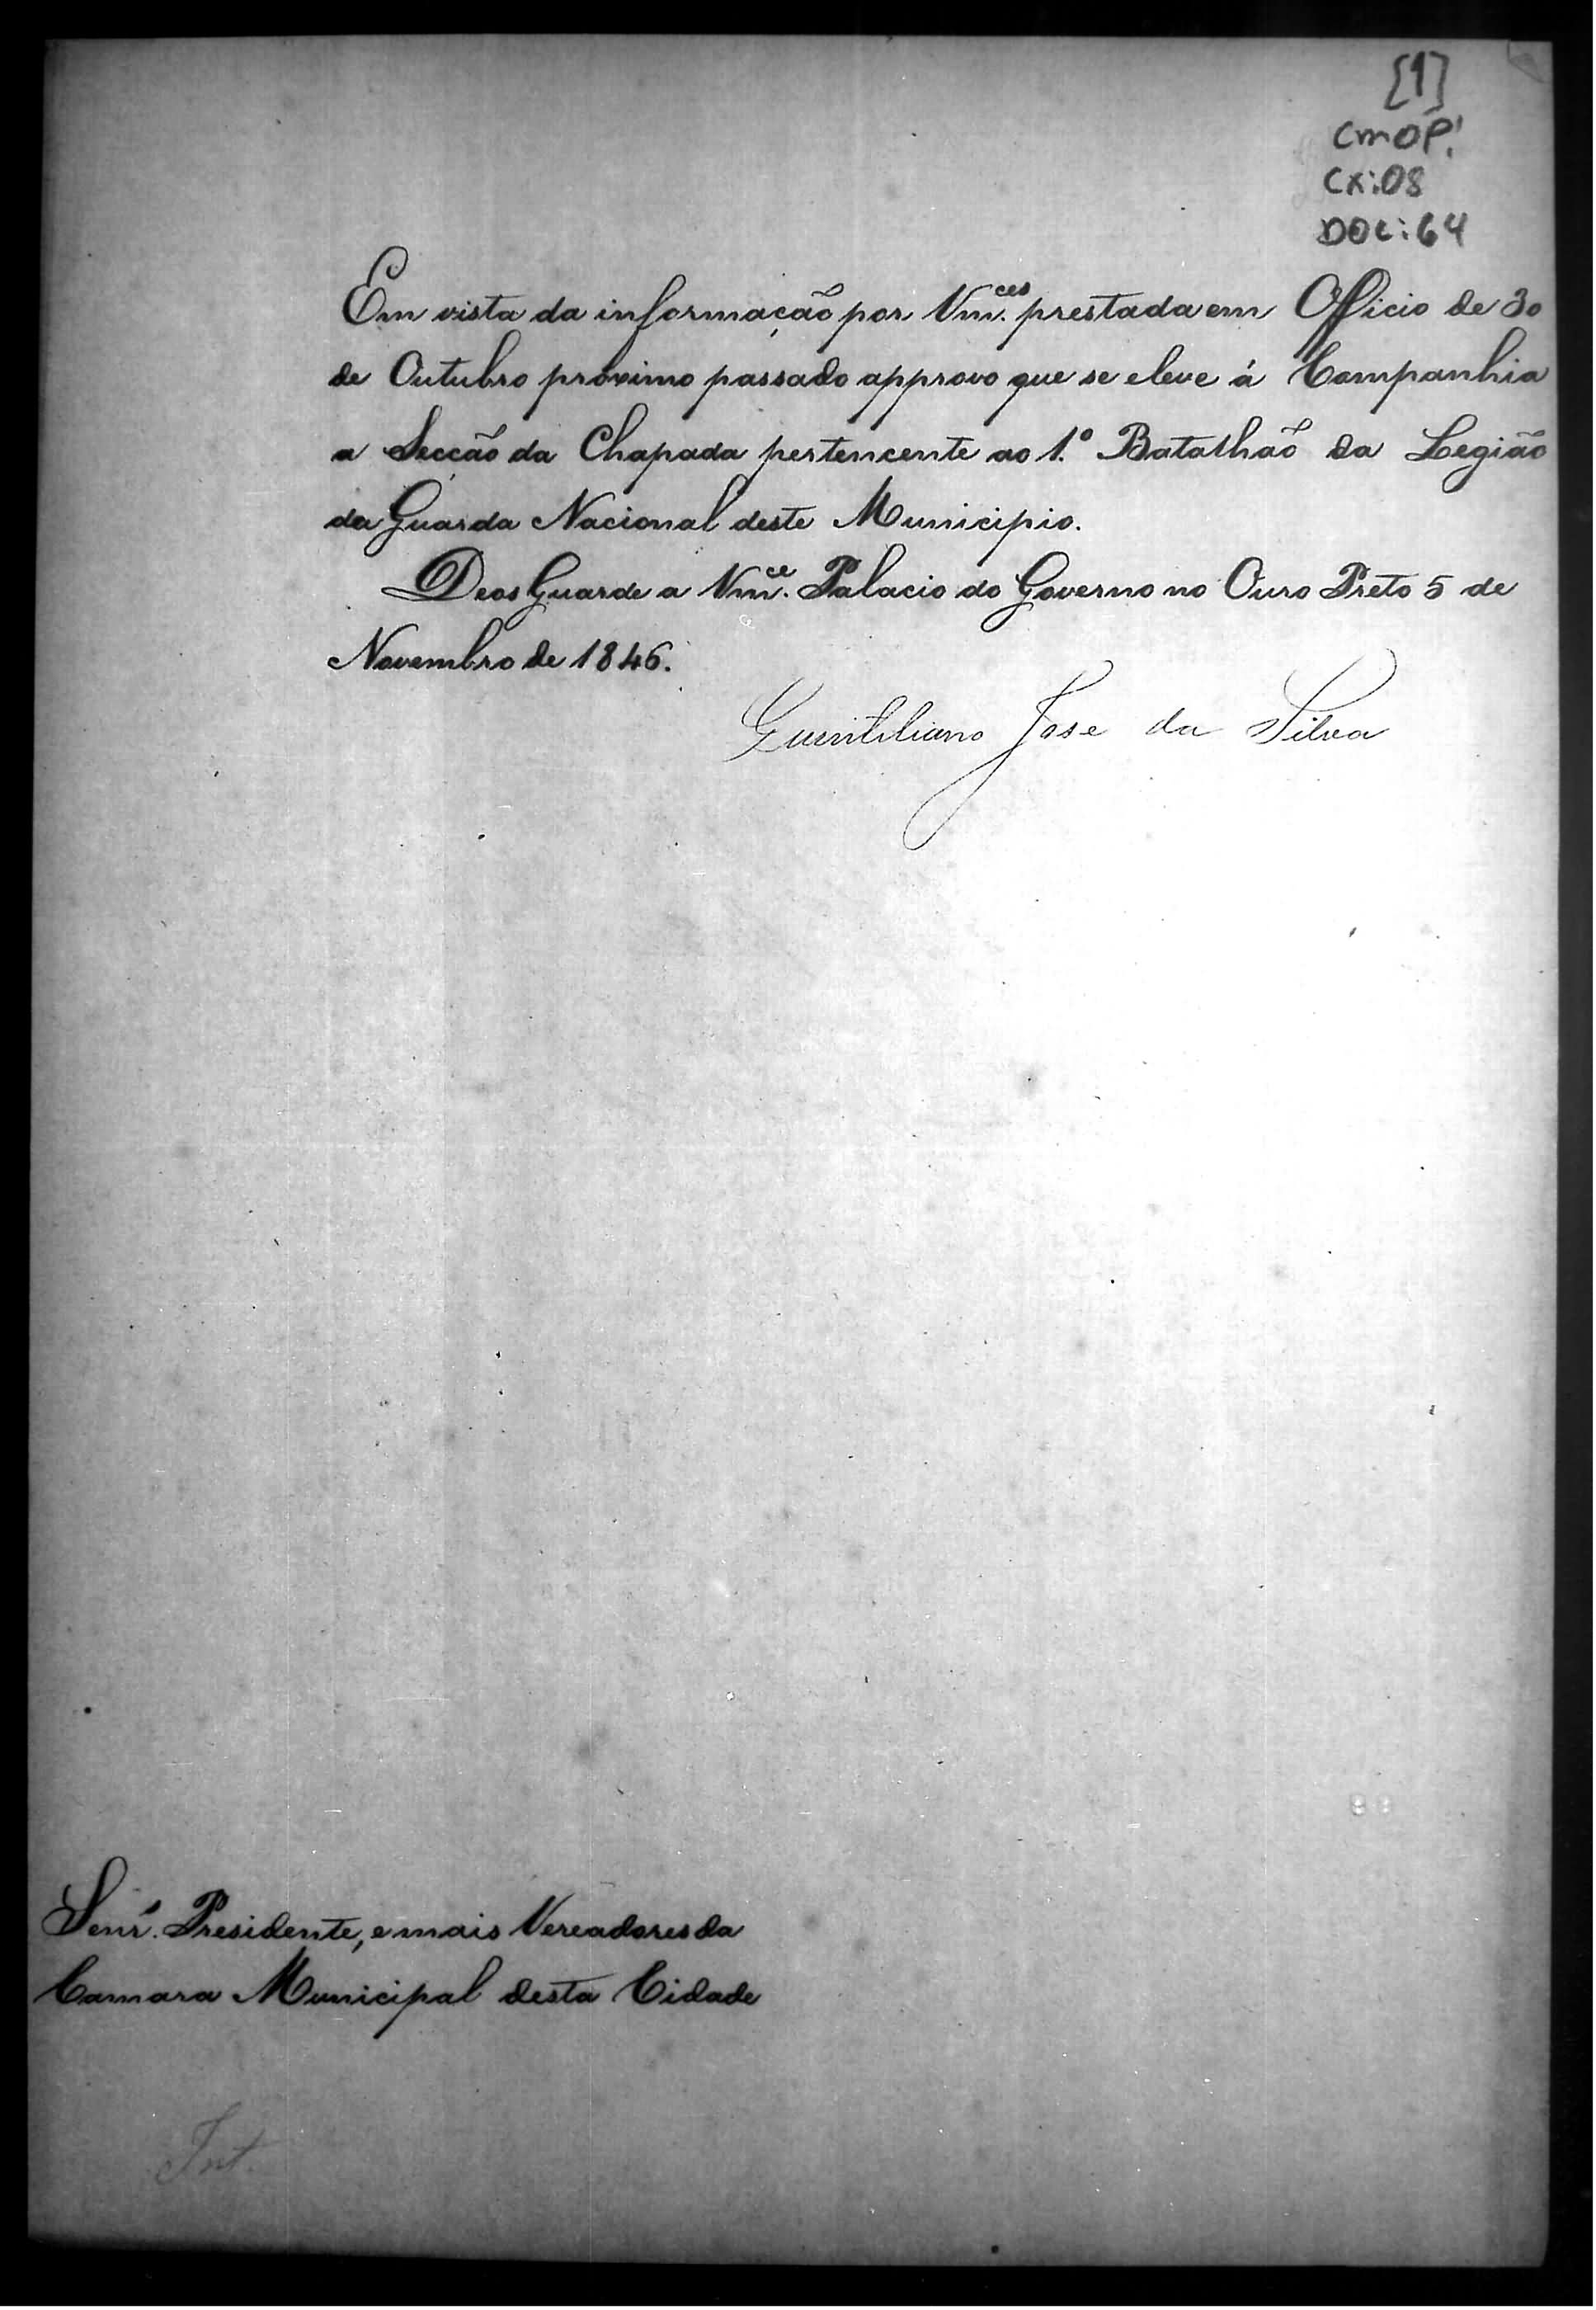 [1]
CMOP!
CX:08
DOC:64
Em vista da informação por Vm.ces prestada em Officio de 30
de Outubro proximo passado approvo que se eleve á Companhia
a Secção da Chapada pertencente ao 1.º Batalhão da Legião
da Guarda Nacional deste Municipio.
Deos Guarde a Vm.ce Palacio do Governo no Ouro Preto 5 de
Novembro de 1846.
Quintiliano Jose da Silva
Senr. Presidente, e mais Vereadores da
Camara Municipal desta Cidade
Int.